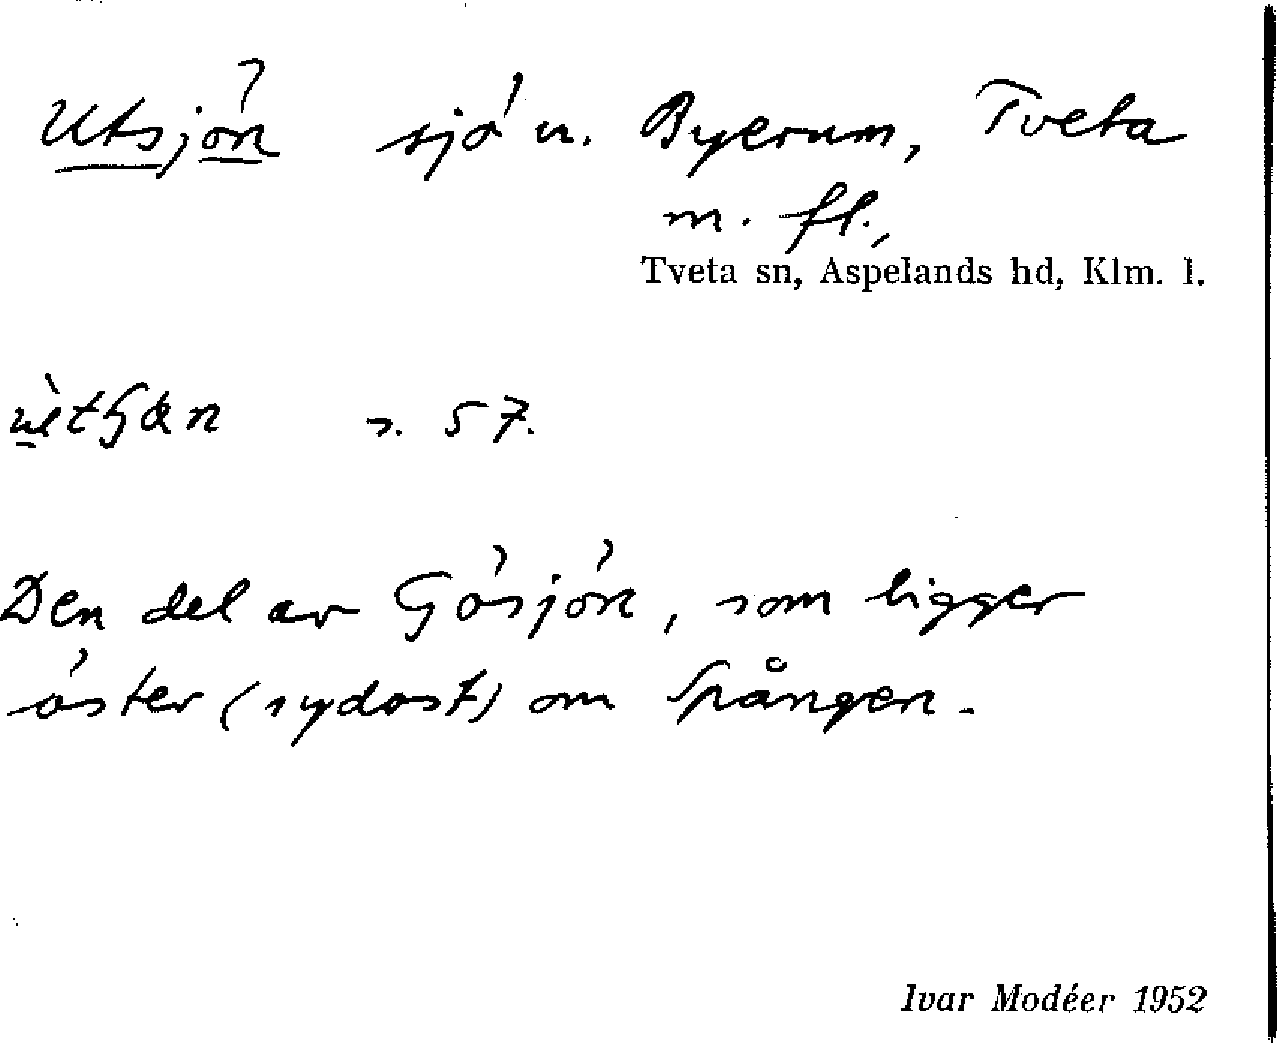 Utsjön sjö u. Byerum, Tveta
m. fl.,
Tveta sn, Aspelands hd, Klm. l.
s. 57.
Den del av Gösjön, som ligger
öster (sydost) om Spången.
Ivar Modéer 1952